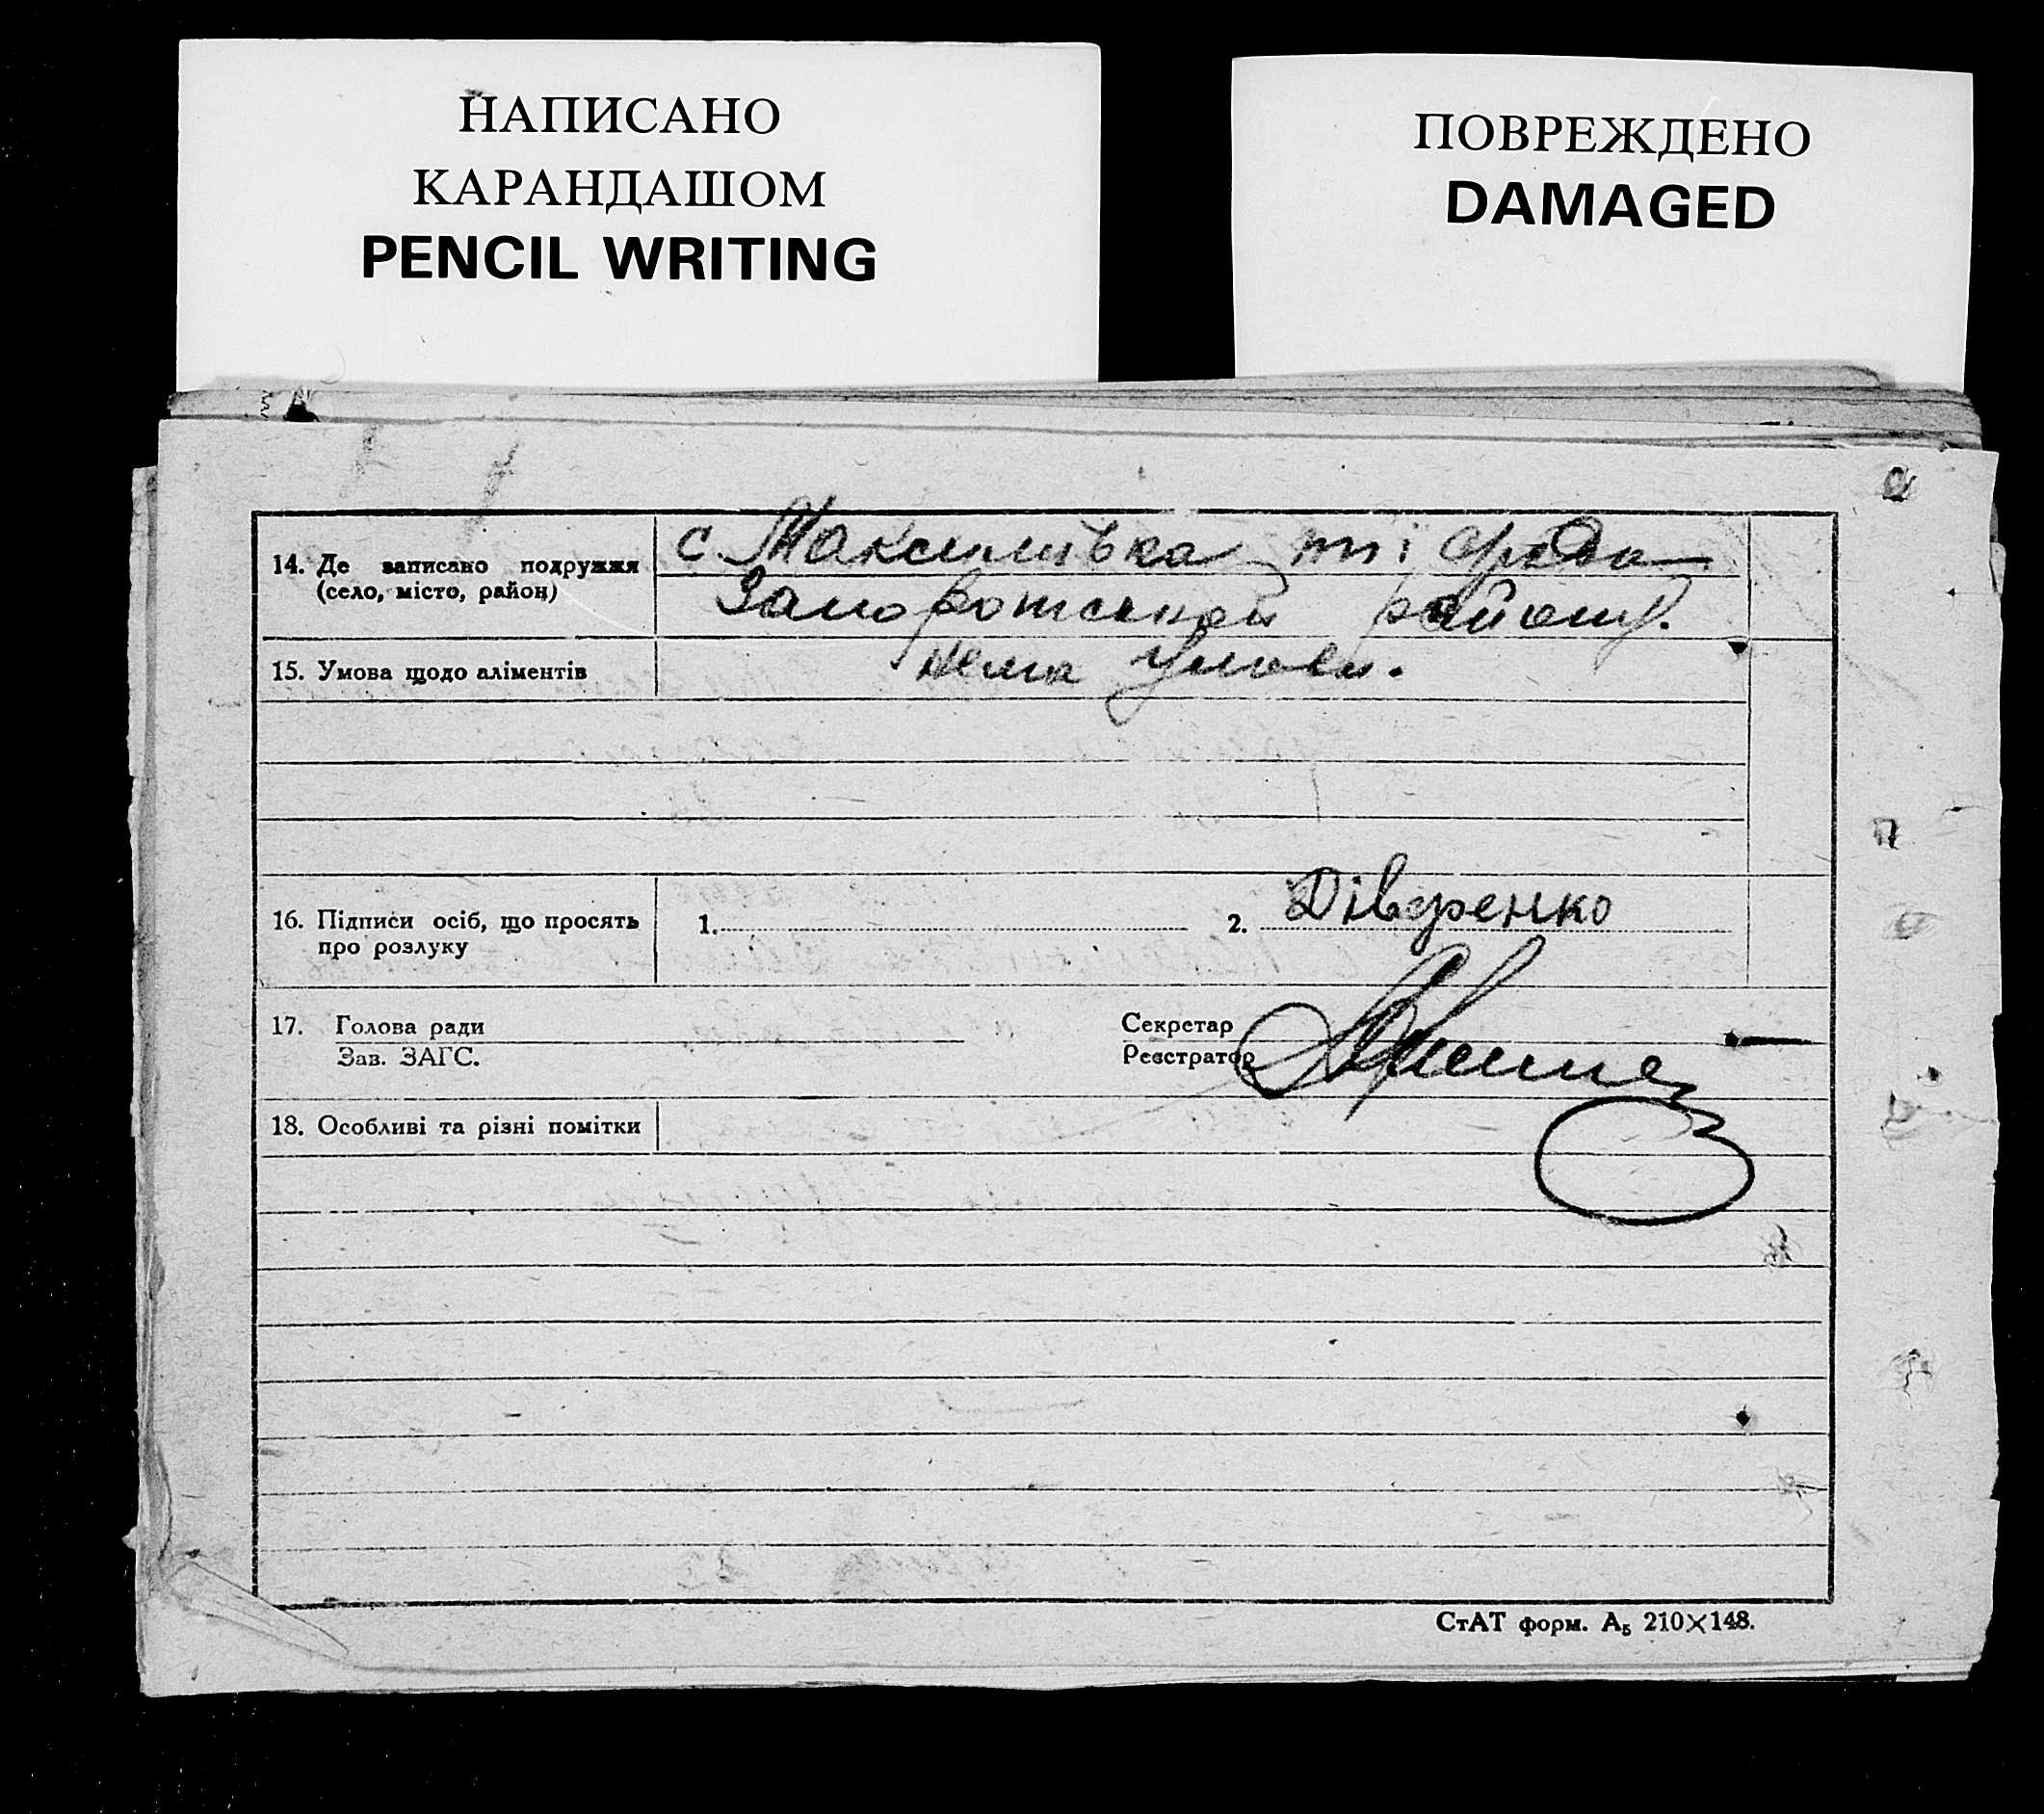 НАПИСАНО
КАРАНДАШОМ
PENCIL WRITING
ПОВРЕЖДЕНО
DAMAGED
14. Де записано подружжя с. Максимівка
(село, місто, район) району.
15. Умова щодо аліментів нема умови.
16. Підписи осіб, що просять 1. 2. Дівфренко
про розлуку
17. Голова ради Секретар
Зав. ЗАГС. Реєстратор
18. Особливі та різні помітки
СтАТ форм. А₅ 210×148.